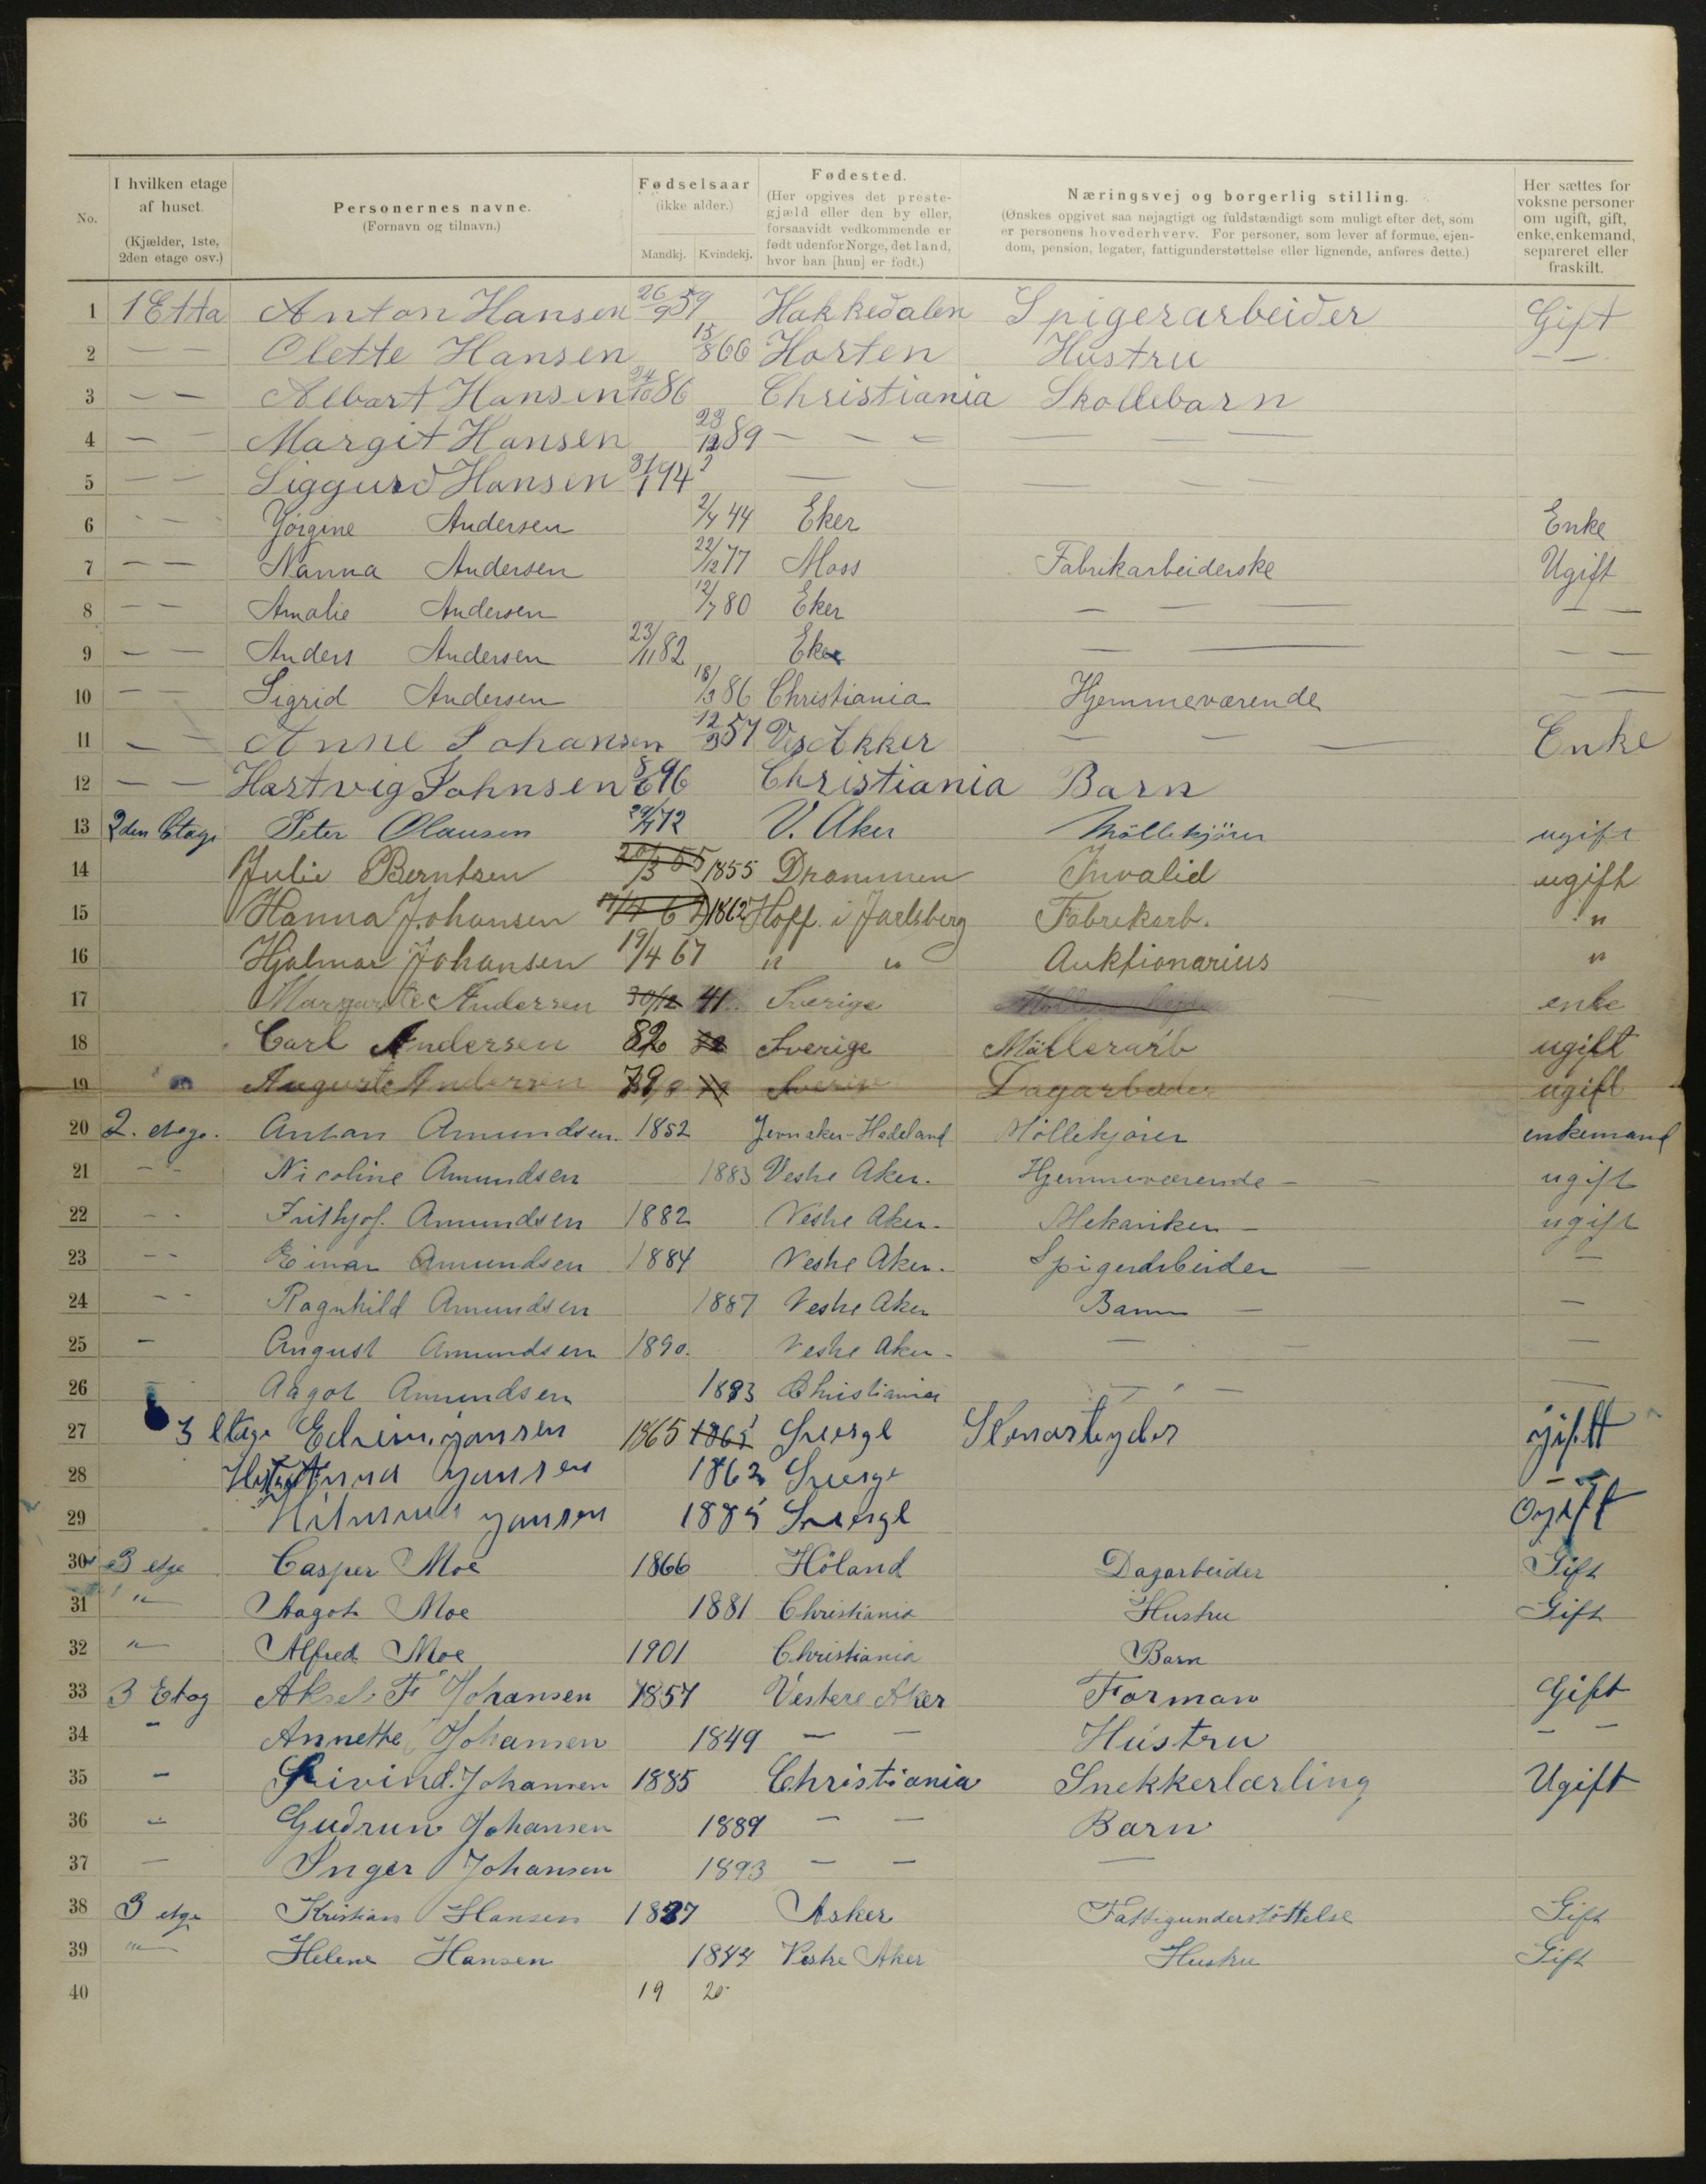 No. I hvilken etage af huset. (Kjælder, 1ste, 2den etage osv.) Personernes navne. (Fornavn og tilnavn.) Fødselsaar (ikke alder.) Mandkj. Kvindekj. Fødested. (Her opgives det prestegjæld eller den by eller, forsaavidt vedkommende er født udenfor Norge, det land, hvor han [hun] er født.) Næringsvej og borgerlig stilling. (Ønskes opgivet saa nøjagtigt og fuldstændigt som muligt efter det, som er personens hovederhverv. For personer, som lever af formue, ejendom, pension, legater, fattigunderstøttelse eller lignende, anføres dette.) Her sættes for voksne personer om ugift, gift, enke, enkemand, separeret eller fraskilt.
1 1 Etta Anton Hansen 26/9 59 Hakkedalen Spigerarbeider Gift
2 — — Olette Hansen 15/8 66 Horten Hustru — —
3 — — Albart Hansen 24/10 86 Christiania Skollebarn
4 — — Margit Hansen 28/12 89 — — — — — —
5 — — Siggurd Hansen 31/1 94 — — — — —
6 - — Jørgine Andersen 2/4 44 Eker Enke
7 — — Nanna Andersen 22/12 77 Moss Fabrikarbeiderske Ugift
8 — — Amalie Andersen 12/7 80 Eker — — — — —
9 — — Anders Andersen 23/11 82 Eker — — — —
10 — — Sigrid Andersen 18/3 86 Christiania Hjemmeværende — —
11 — — Anne Johansen 12/3 57 Ves Akker — — — Enke
12 — — Hartvig Johnsen 8/6 96 Christiania Barn
13 2den Etage Peter Olausen 29/7 72 V. Aker Møllekjører ugift
14 Julie Berntsen 20/3 55 1855 Drammen Invalid ugift
15 Hanna Johansen 17/4 62 1862 Hoff. i Jarlsberg Fabrekarb. "
16 Hjalmar Johansen 19/4 67 " " Auktionarius "
17 Margarete Andersen 30/12 41 Sverige enke
18 Carl Andersen 82 Sverige Møllerarb ugift
19 Auguste Andersen 79 Sverige Dagarbeider ugift
20 2. etage. Anton Amundsen. 1852 Jevnaker-Hadeland Møllekjører enkemand
21 - - Nicoline Amundsen 1883 Vestre Aker. Hjemmeværende — — ugift
22 - - Frithjof. Amundsen 1882 Vestre Aker. Mekaniker — ugift
23 - - Einar Amundsen 1884 Vestre Aker. Spigerarbeider — —
24 - - Ragnhild Amundsen 1887 Vestre Aker Barn — —
25 - August Amundsen 1890. Vestre Aker. — — —
26 - Aagot Amundsen 1893 Christiania — — — —
27 3 etage jansen 1865 1865 Sverge gift
28 Anna jansen 1862 Sverge — —
29 jansen 1885 Sverge Ogift
30 3 etge Casper Moe 1866 Høland Dagarbeider Gift
31 " Aagot Moe 1881 Christiania Hustru Gift
32 " Alfred Moe 1901 Christiania Barn
33 3 Etag Aksel. F Johansen 1857 Vestere Aker Forman Gift
34 - Annethe Johansen 1849 — — Hustru — —
35 - Eivind. Johansen 1885 Christiania Snekkerlærling Ugift
36 - Gudrun Johansen 1889 — — Barn
37 — Inger Johansen 1893 — — —
38 3 etge Kristian Hansen 1837 Asker Fattigunderstøttelse Gift
39 " Helene Hansen 1844 Vestre Aker Hustru Gift
40 19 20